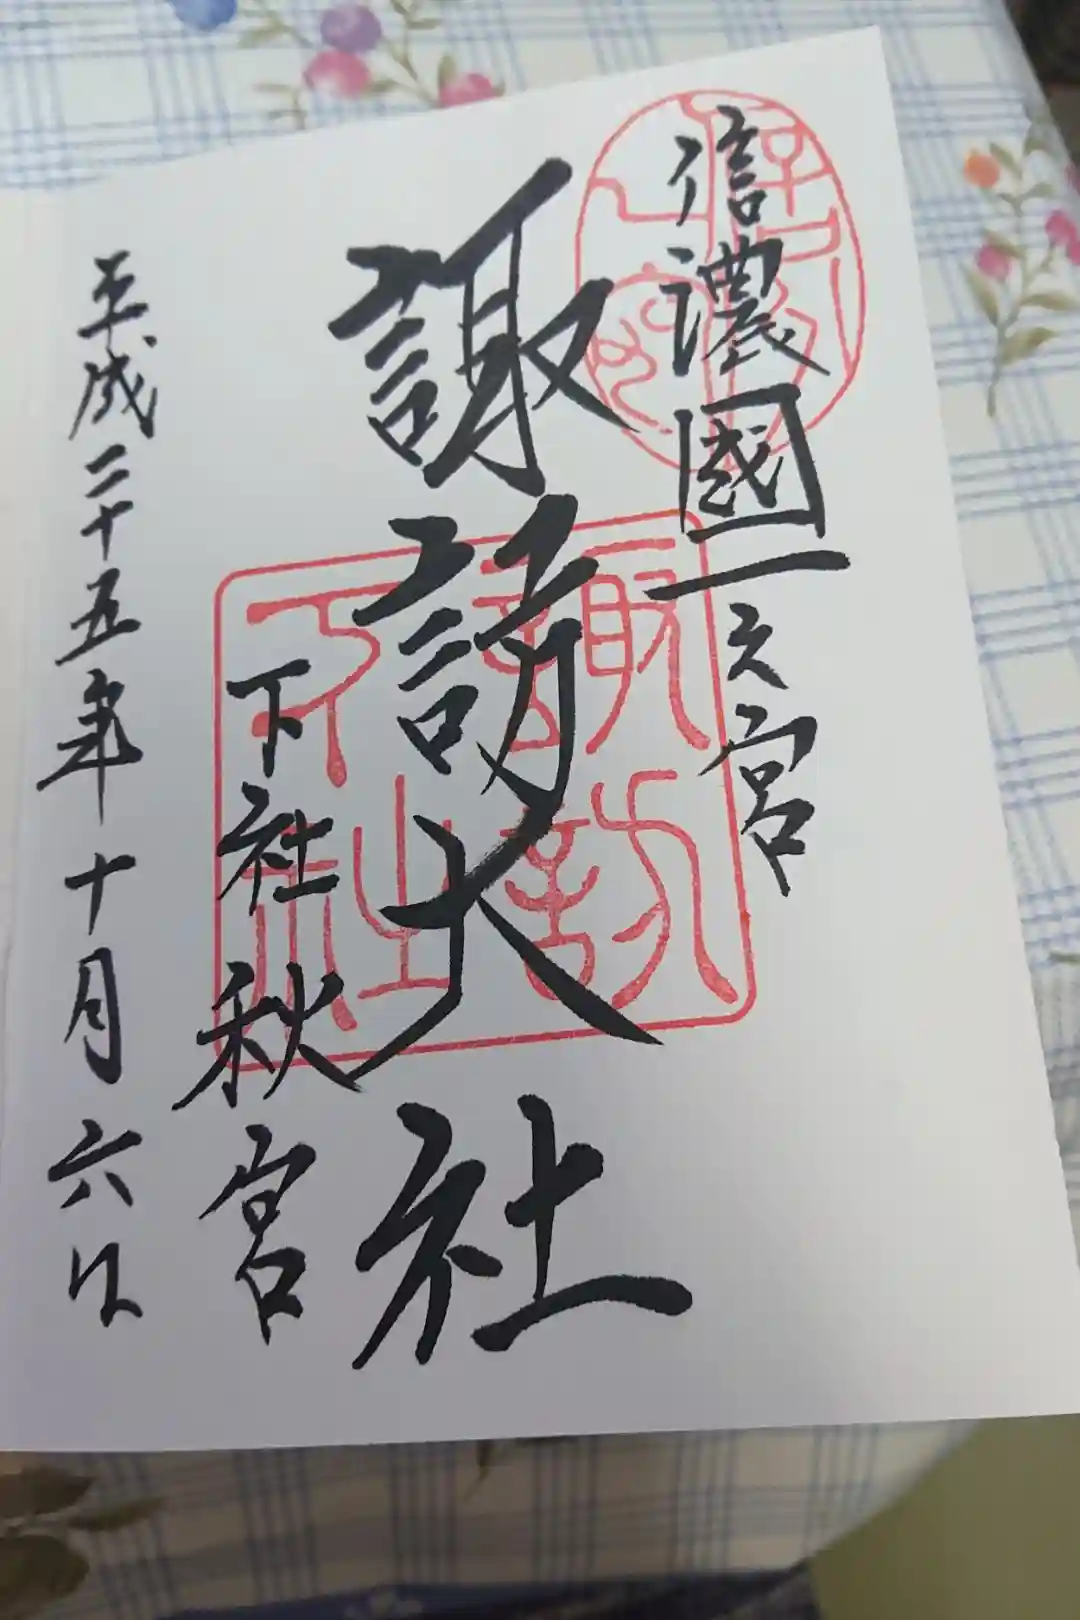 信濃國一之宮
諏訪大社
下社秋宮
平成二十五年十月六日
諏訪
下社